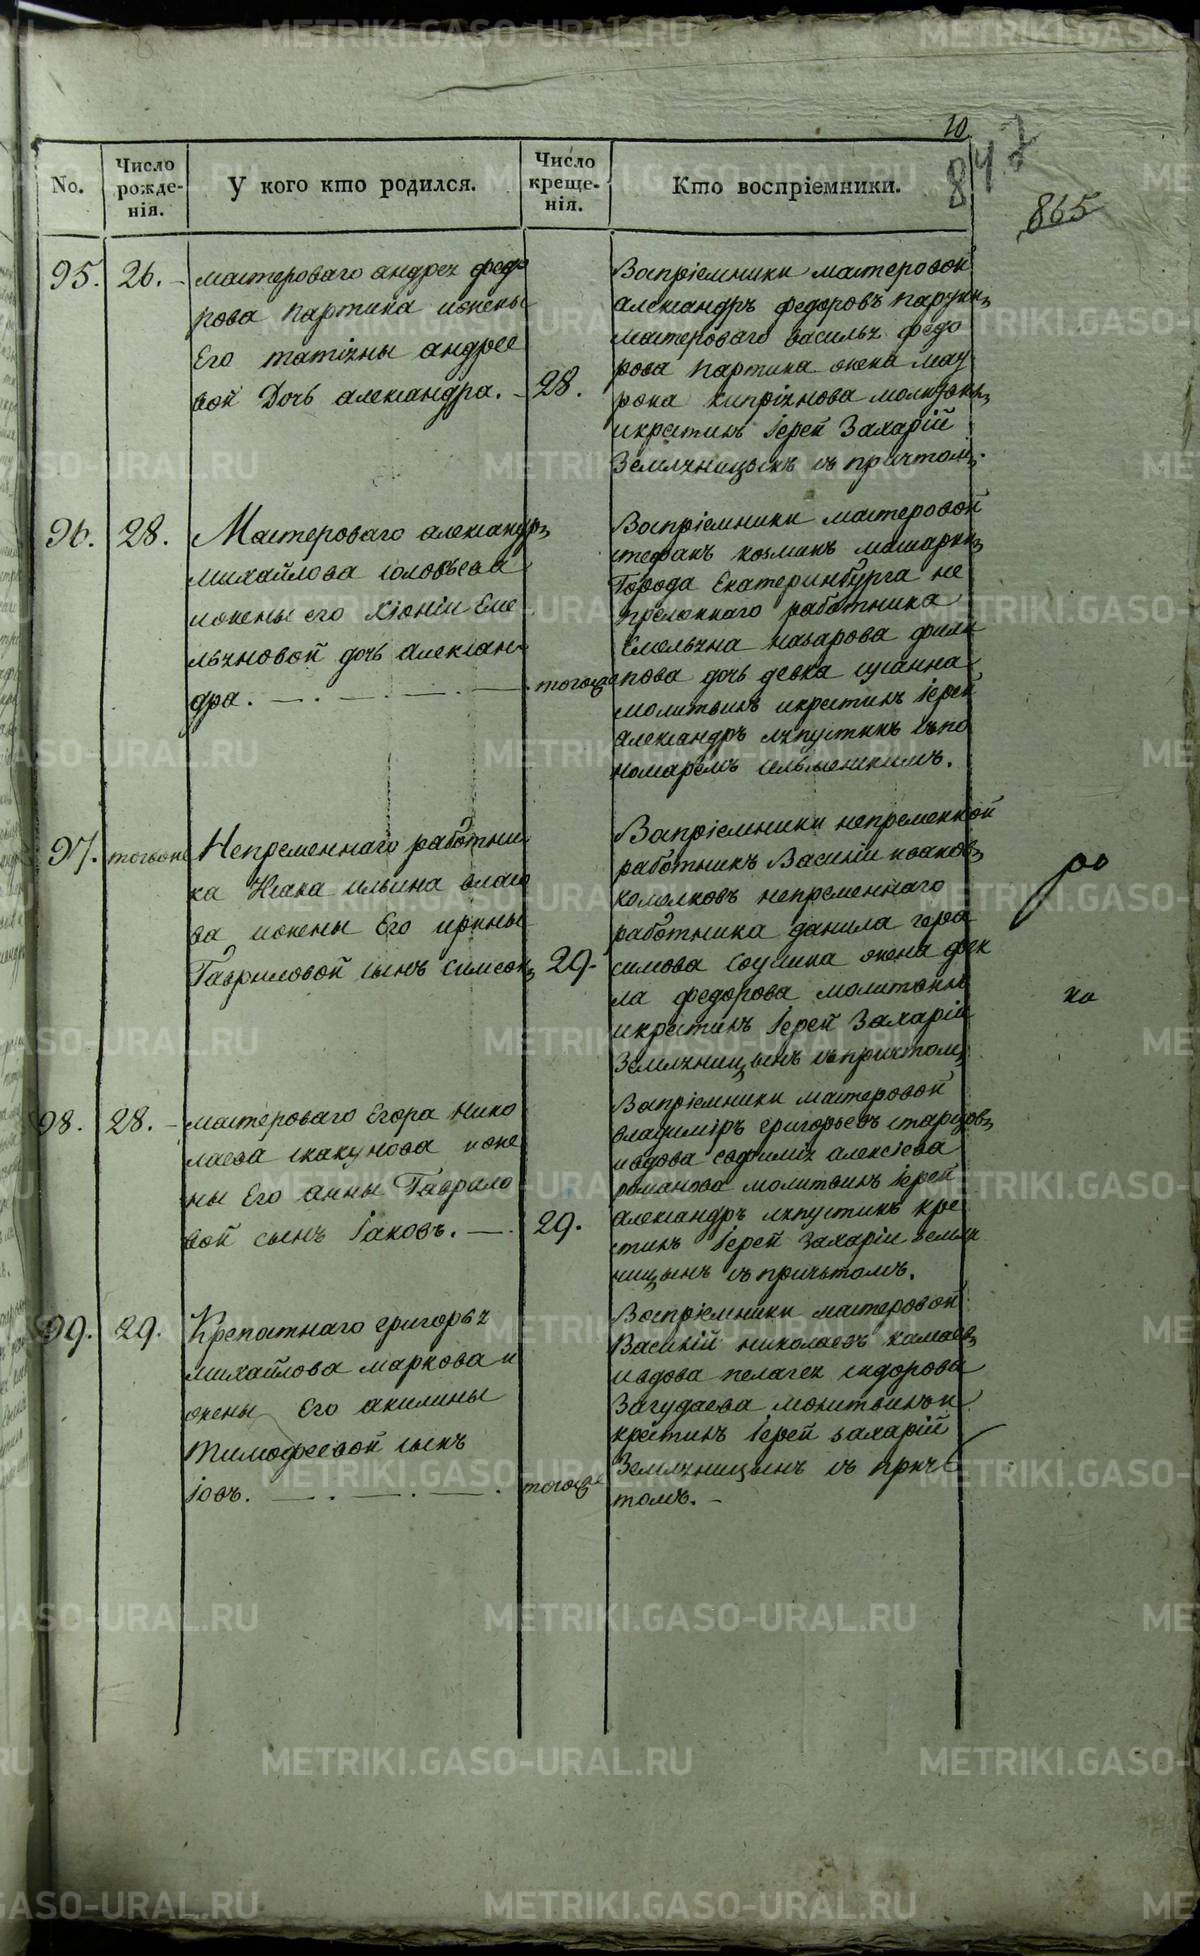 10
847
865
No.
Число рожде-нія.
У кого кто родился.
Число креще-нія.
Кто воспріемники.
95. 26. -
мастероваго андрея федо
рова партина ижены
Его татіяны андрее
вой Дочь александра. -
28.
Воспріемники мастеровой
александръ федоровъ партин,
мастероваго василья федо
рова партина жена мау
рока кипріянова молитвил,
икрестилъ Іерей Захарій
Земляницынъ съ причтом.
96. 28.
Мастероваго александр,
михайлова соловьева
ижены его хіоніи Еме
льяновой дочь алексан
дра. — . — . — . —
тогоже
Воспріемники мастеровой
стефанъ козминъ
Города Екатеринбурга не
пременнаго работника
Емельяна назарова фили
пова дочь девка сусанна
молитвилъ икрестилъ Іерей
александръ ляпустинъ съпо
номарёмъ сельменскимъ.
97. тогоже
Непременнаго работни
ка Исака ильина власо
ва ижены Его ирины
Гавриловой сынъ симеон,
29-
Воспріемники непременной
работникъ Василіи исаков,
комелковъ непременнаго
работника данила гера
симова соулина жена фек
ла федорова молитвил
икрестилъ Іерей Захаріи
Земляницынъ съпричтом,
ро
ка
98. 28. -
мастероваго Егора нико
лаева скакунова ижe
ны Его анны Гаврило
вой сынъ Іаковъ. —
29.
Воспріемники мастеровой
владиміръ григорьевъ старцов,
ивдова евфимія алексіева
романова молитвилъ Іерей
александръ ляпустинъ кре
стилъ Іерей захаріи земля
ницынъ съ причьтомъ.
99. 29.
Крепатнаго григорья
михайлова маркова и
жены Его акилины
Тимофеевой сынъ
Іовъ. — . — . — . — .
тогоже
Воспріемники мастеровой
Василій николаевъ камаев,
ивдова пелагея сидорова
Загудаева молитвилъ и
крестилъ Іерей захарій
Земляницынъ съ прич
томъ. -
METRIKI.GASO-URAL.RU